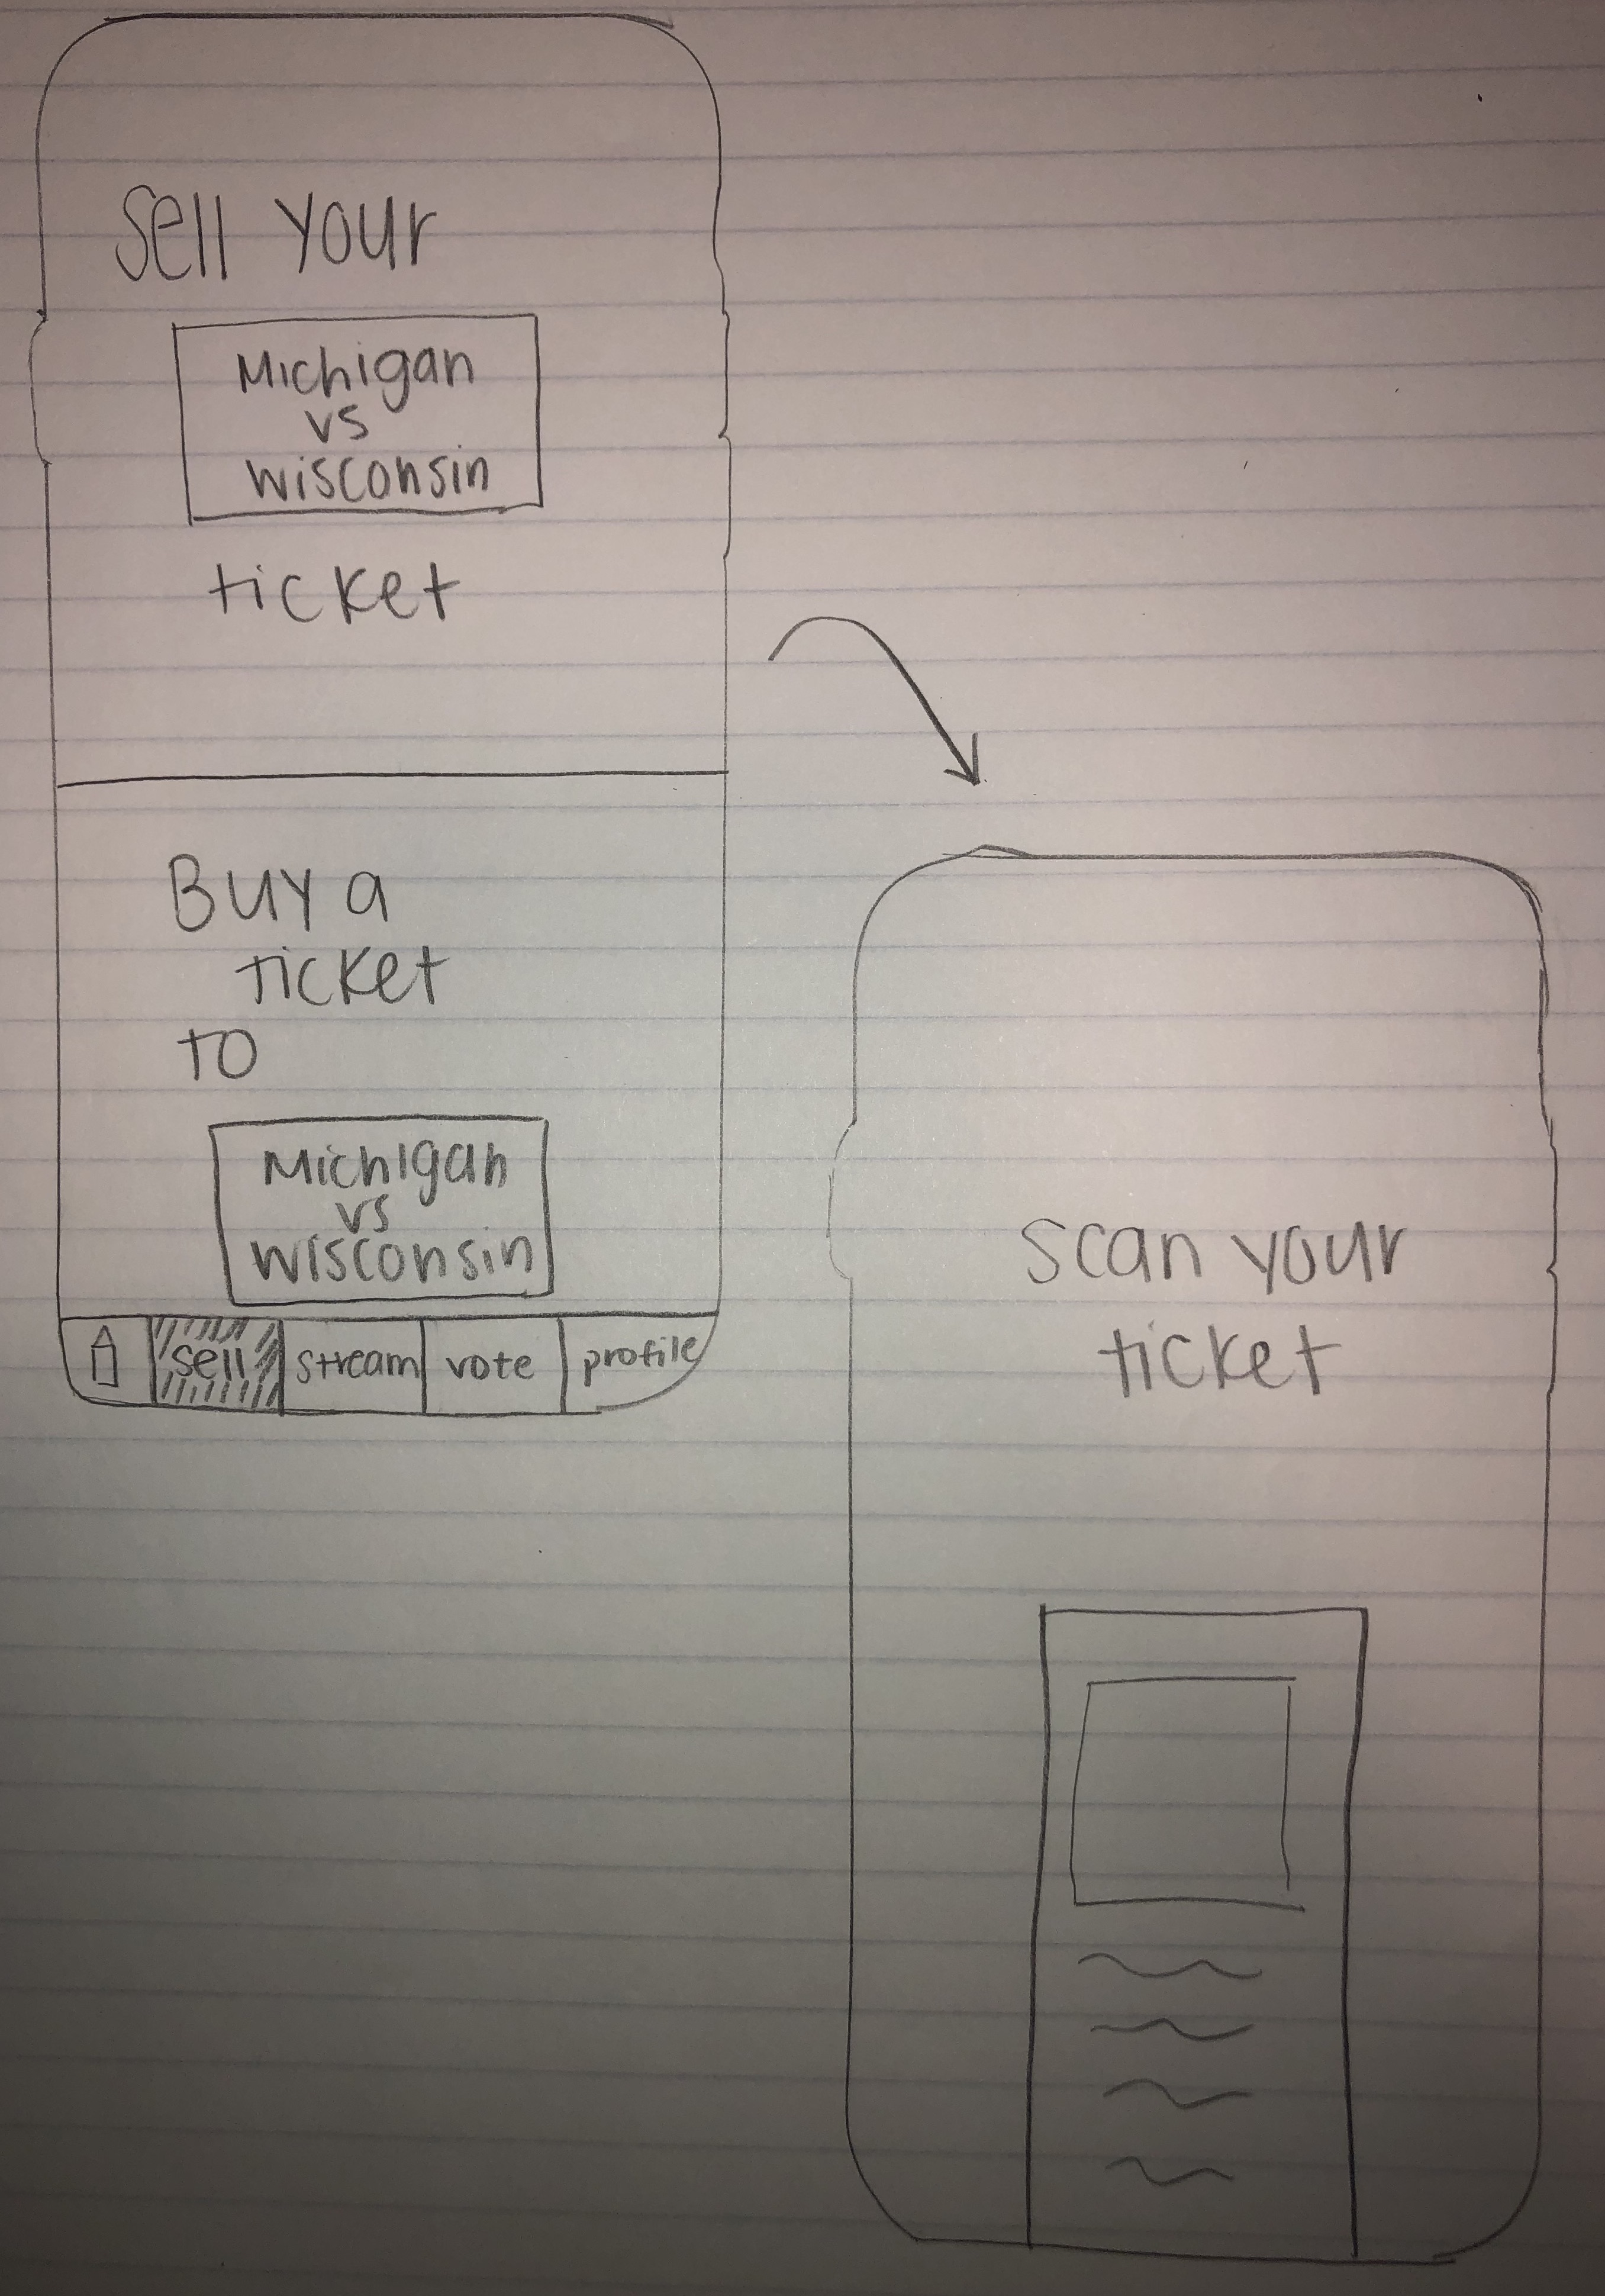 Sell your
Michigan
vs
wisconsin
ticket
Buy a
ticket
to
Michigan
vs
wisconsin
sell stream vote profile
scan your
ticket